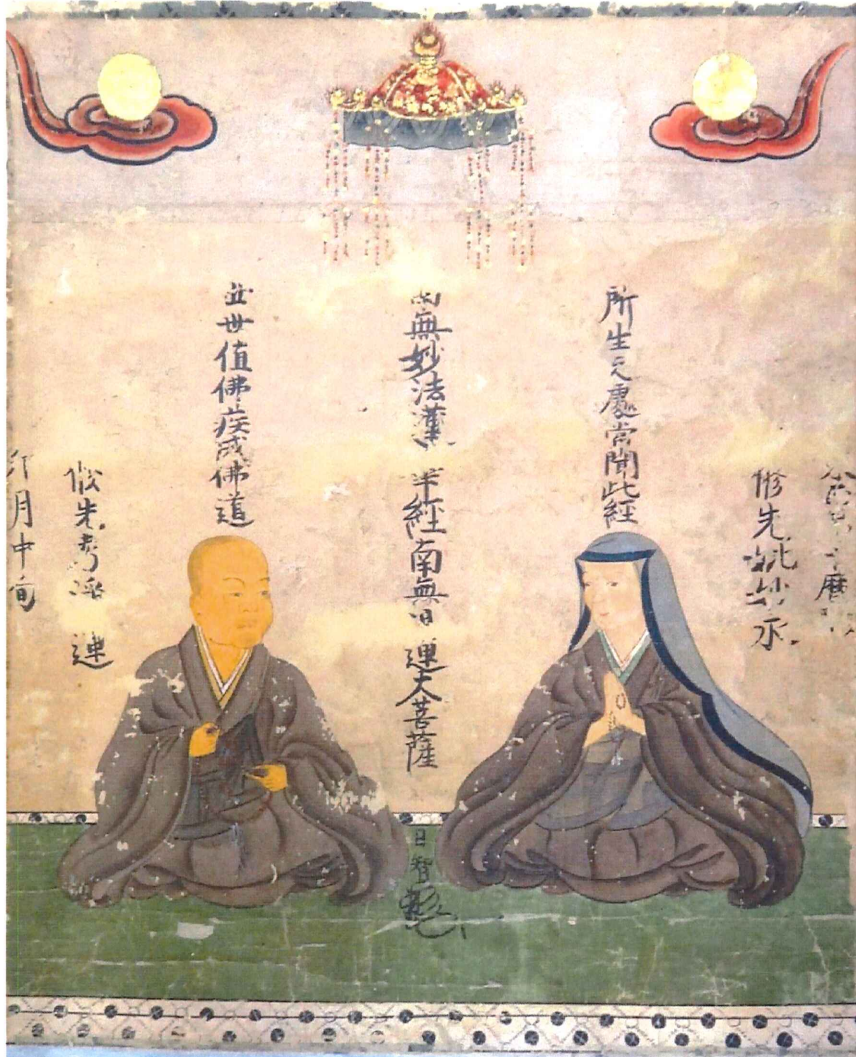 暦
修先妣妙永
所生之處常聞此經
南無妙法蓮華經南無日蓮大菩薩
日智
世世值佛疾成佛道
修先考 蓮
卯月中旬